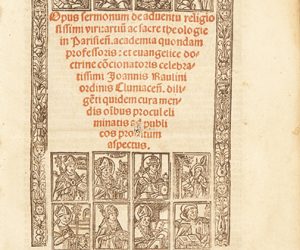 Opus sermonum de aduentu religio
sissimi viri: artiũ ac sacre theologie
in Parisieñ. academia quondam
professoris: et euangelice do
ctrine cõcionatoris celebra
tissimi Joannis Raulini
ordinis Cluniaceñ. dili
gẽti quidem cura men
dis oĩbus procul eli
minatis ad publi
cos prolatum
aspectus.